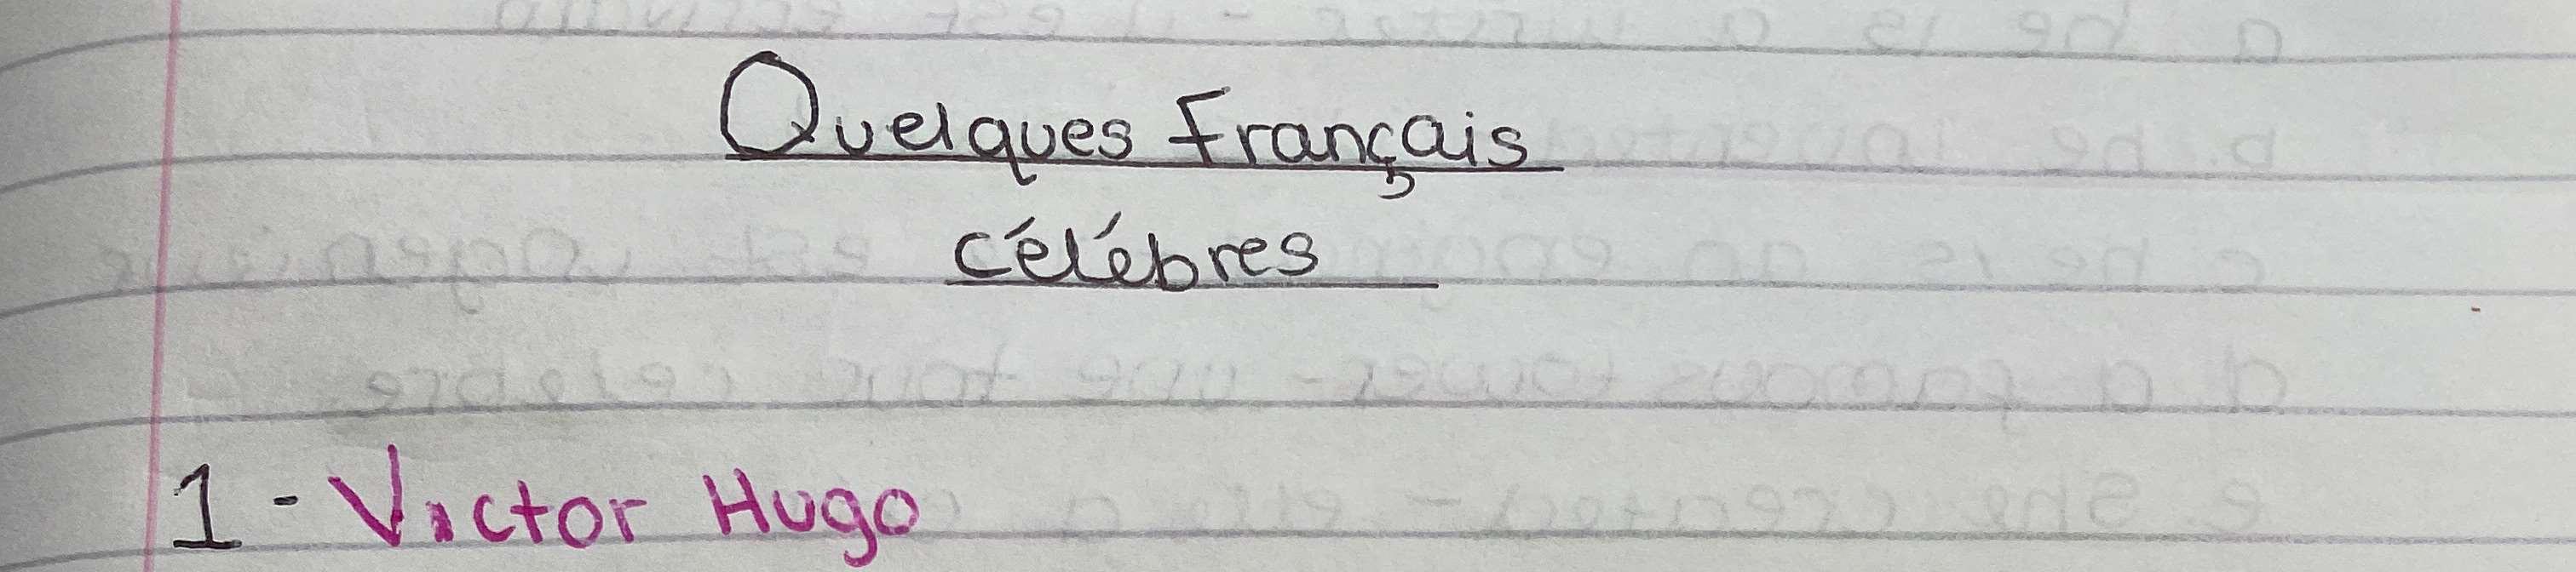 Quelques Français
célébres
1 - Victor Hugo